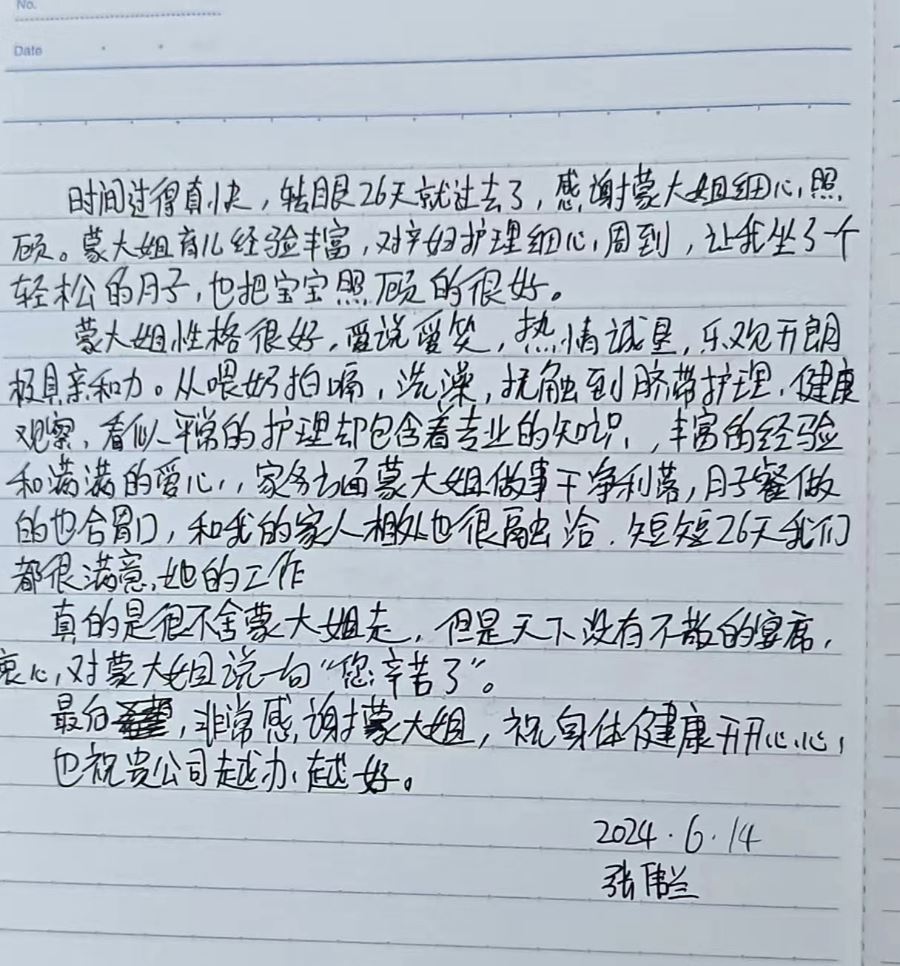 No.
Date
时间过得真快，转眼26天就过去了，感谢蒙大姐细心照
顾。蒙大姐育儿经验丰富，对产妇护理细心，周到，让我坐了个
轻松的月子，也把宝宝照顾的很好。
蒙大姐性格很好，爱说爱笑，热情诚恳，乐观开朗
极具亲和力。从喂奶拍嗝，洗澡，抚触到脐带护理，健康
观察，看似平常的护理却包含着专业的知识，丰富的经验
和满满的爱心，家务方面蒙大姐做事干净利落，月子餐做
的也合胃口，和我的家人相处也很融洽．短短26天我们
都很满意她的工作
真的是很不舍蒙大姐走，但是天下没有不散的宴席，
衷心对蒙大姐说一句“您辛苦了”。
最后，非常感谢蒙大姐，祝身体健康开开心心，
也祝贵公司越办越好。
2024.6.14
张伟兰